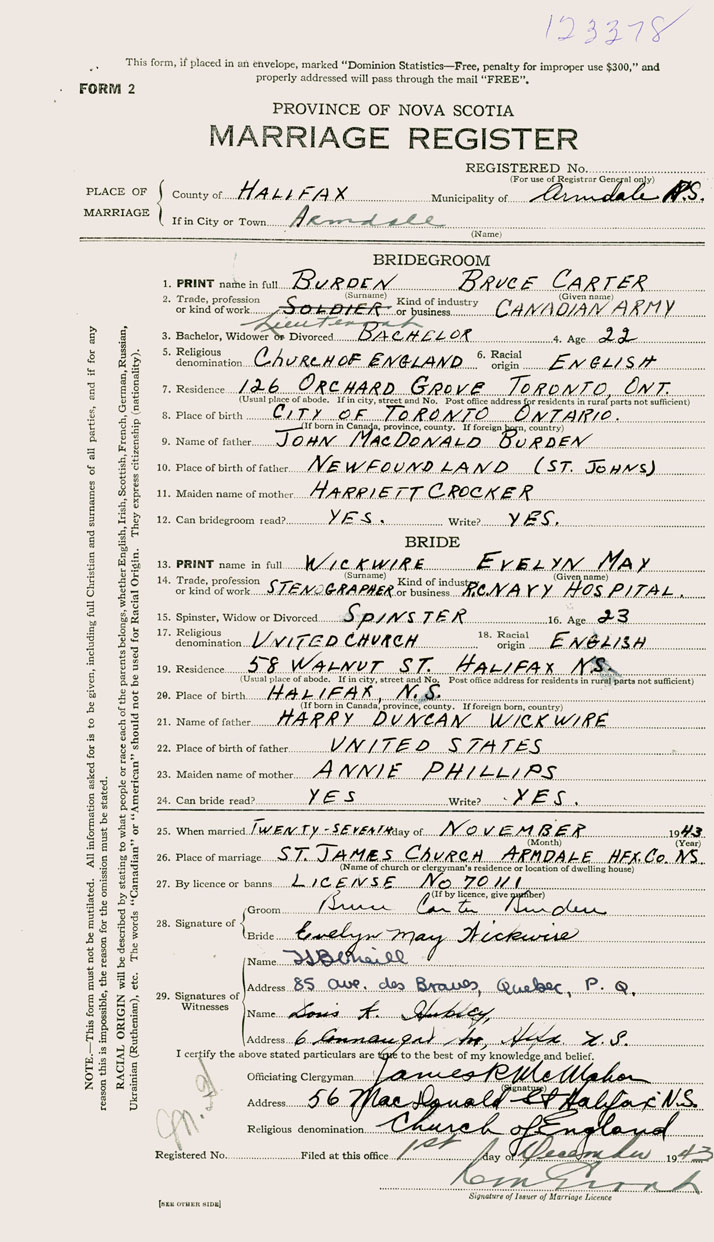 123378
This form, if placed in an envelope, marked "Dominion Statistics—Free, penalty for improper use $300," and
properly addressed will pass through the mail "FREE".
FORM 2
PROVINCE OF NOVA SCOTIA
MARRIAGE REGISTER
REGISTERED No.
(For use of Registrar General only)
PLACE OF MARRIAGE
County of HALIFAX Municipality of Armdale N.S.
If in City or Town Armdale
(Name)
BRIDEGROOM
1. PRINT name in full BURDEN BRUCE CARTER
(Surname) (Given name)
2. Trade, profession or kind of work SOLDIER Lieutenant Kind of industry or business CANADIAN ARMY
3. Bachelor, Widower or Divorced BACHELOR 4. Age 22
5. Religious denomination CHURCH OF ENGLAND 6. Racial origin ENGLISH
7. Residence 126 ORCHARD GROVE TORONTO, ONT.
(Usual place of abode. If in city, street and No. Post office address for residents in rural parts not sufficient)
8. Place of birth CITY OF TORONTO ONTARIO.
(If born in Canada, province, county. If foreign born, country)
9. Name of father JOHN MACDONALD BURDEN
10. Place of birth of father NEWFOUNDLAND (ST. JOHNS)
11. Maiden name of mother HARRIETT CROCKER
12. Can bridegroom read? YES. Write? YES.
BRIDE
13. PRINT name in full WICKWIRE EVELYN MAY
(Surname) (Given name)
14. Trade, profession or kind of work STENOGRAPHER Kind of industry or business R.C. NAVY HOSPITAL.
15. Spinster, Widow or Divorced SPINSTER 16. Age 23
17. Religious denomination UNITED CHURCH 18. Racial origin ENGLISH
19. Residence 58 WALNUT ST. HALIFAX N.S.
(Usual place of abode. If in city, street and No. Post office address for residents in rural parts not sufficient)
20. Place of birth HALIFAX, N.S.
(If born in Canada, province, county. If foreign born, country)
21. Name of father HARRY DUNCAN WICKWIRE
22. Place of birth of father UNITED STATES
23. Maiden name of mother ANNIE PHILLIPS
24. Can bride read? YES Write? YES.
25. When married TWENTY-SEVENTH day of NOVEMBER 1943
(Month) (Year)
26. Place of marriage ST. JAMES CHURCH ARMDALE HFX. CO. N.S.
(Name of church or clergyman's residence or location of dwelling house)
27. By licence or banns LICENSE No 70111
(If by licence, give number)
28. Signature of
Groom Bruce Carter Burden
Bride Evelyn May Wickwire
29. Signatures of Witnesses
Name
Address 85 ave. des Braves, Quebec, P. Q.
Name Louis K. Hubley,
Address 6 Connaught Hfx N.S.
I certify the above stated particulars are true to the best of my knowledge and belief.
Officiating Clergyman James R McMahon
(Signature)
Address 56 MacDonald St Halifax N.S.
Religious denomination Church of England
Registered No. Filed at this office 1st day of December 1943
Signature of Issuer of Marriage Licence
[SEE OTHER SIDE]
NOTE.—This form must not be mutilated. All information asked for is to be given, including full Christian and surnames of all parties, and if for any
reason this is impossible, the reason for the omission must be stated.
RACIAL ORIGIN will be described by stating to what people or race each of the parents belongs, whether English, Irish, Scottish, French, German, Russian,
Ukrainian (Ruthenian), etc. The words "Canadian" or "American" should not be used for Racial Origin. They express citizenship (nationality).